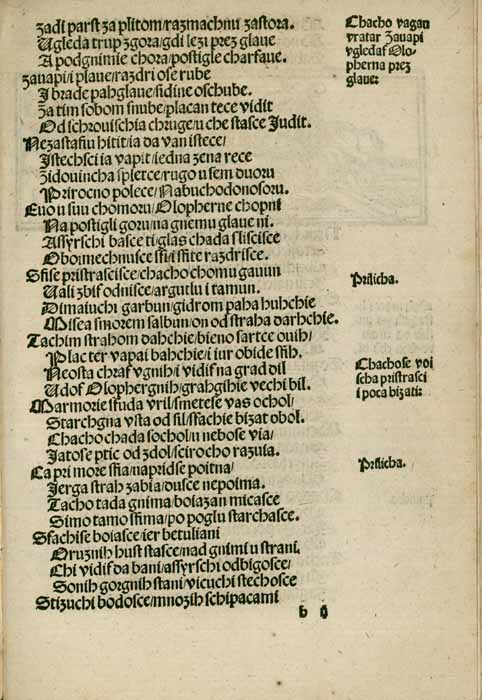 Zadi parst za plitom/razmachnu zastora.
Ugleda trup zgora/gdi lezi prez glaue
A podgnimie chora/postigle charfaue.
Zauapi/i plaue/razdri ose rube
I brade pahglaue/sidine oschube.
Za tim sobom snube/placan tece vidit
Od schrouischia chruge/u che stasce Judit.
Nezastasiu hitit/ia da van istece/
Istechsci ia vapit/iedna zena rece
Zidouincha spletce/rugo u sem duoru
Prirocno polece/Nabuchodonosoru.
Euo u suu chomoru/Olopherne chopni
Na postigli goru/na gnemu glaue ni.
Assyrschi basce ti/glas chada sliscisce
Oboimechnusce ssi/i ssite razdrisce.
Ssise pristrascisce/chacho chomu gauun
Uali zbis odnisce/argutlu i tamun.
Dimaiuchi garbun/gidrom paha huhchie
Misca smorem salbun/on od straha darhchie.
Tachim strahom dahchie/bieno sartce ouih/
Plac ter vapai bahchie/i iur obide ssih.
Neosta chras vgnih/i vidis na grad dil
Udos Olophergnih/grahgihie vechi bil.
Marmorie ssuda vril/smetese vas ochol/
Starchgna vsta od sil/ssachie bizat obol.
Chacho chada sochol/u nebose via/
Jatose ptic od zdol/scirocho razuia.
Ca pri more ssia/napridse poitna/
Jerga strah zabia/dusce nepoima.
Tacho tada gnima/boiazan micasce
Simo tamo ssima/po poglu starchasce.
Ssachise boiasce/ier betuliani
Oruznih hust stasce/nad gnimi u strani.
Chi vidis da bani/assyrschi odbigosce/
Sonih gorgnih stani/vicuchi stechosce
Stizuchi bodosce/mnozih schipacami
Chacho vagau
vratar Zauapi
vgledas Olo-
pherna prez
glaue:
Prilicha.
Chachose voi
scha pristrasci
i poca bizati:
Prilicha.
b